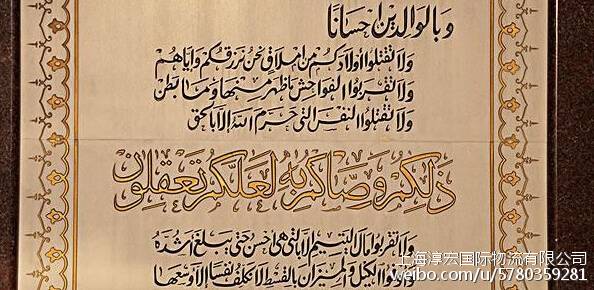 وبالوالدين احسانا
ولا تقتلوا أولادكم من املاق نحن نرزقكم واياهم
ولا تقربوا الفواحش ما ظهر منها وما بطن
ولا تقتلوا النفس التى حرم الله الا بالحق
ذلكم وصاكم به لعلكم تعقلون
ولا تقربوا مال اليتيم الا بالتى هى احسن حتى يبلغ اشده
وأوفوا الكيل والميزان بالقسط لا نكلف نفسا الا وسعها
上海淳宏国际物流有限公司
weibo.com/u/5780359281